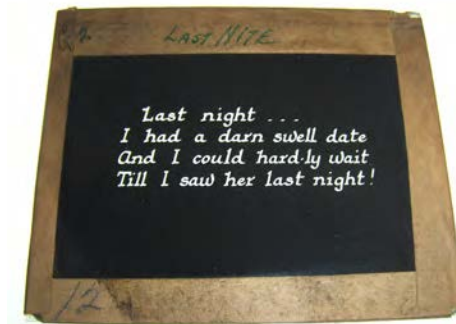 LAST NITE
Last night ...
I had a darn swell date
And I could hard-ly wait
Till I saw her last night!
12